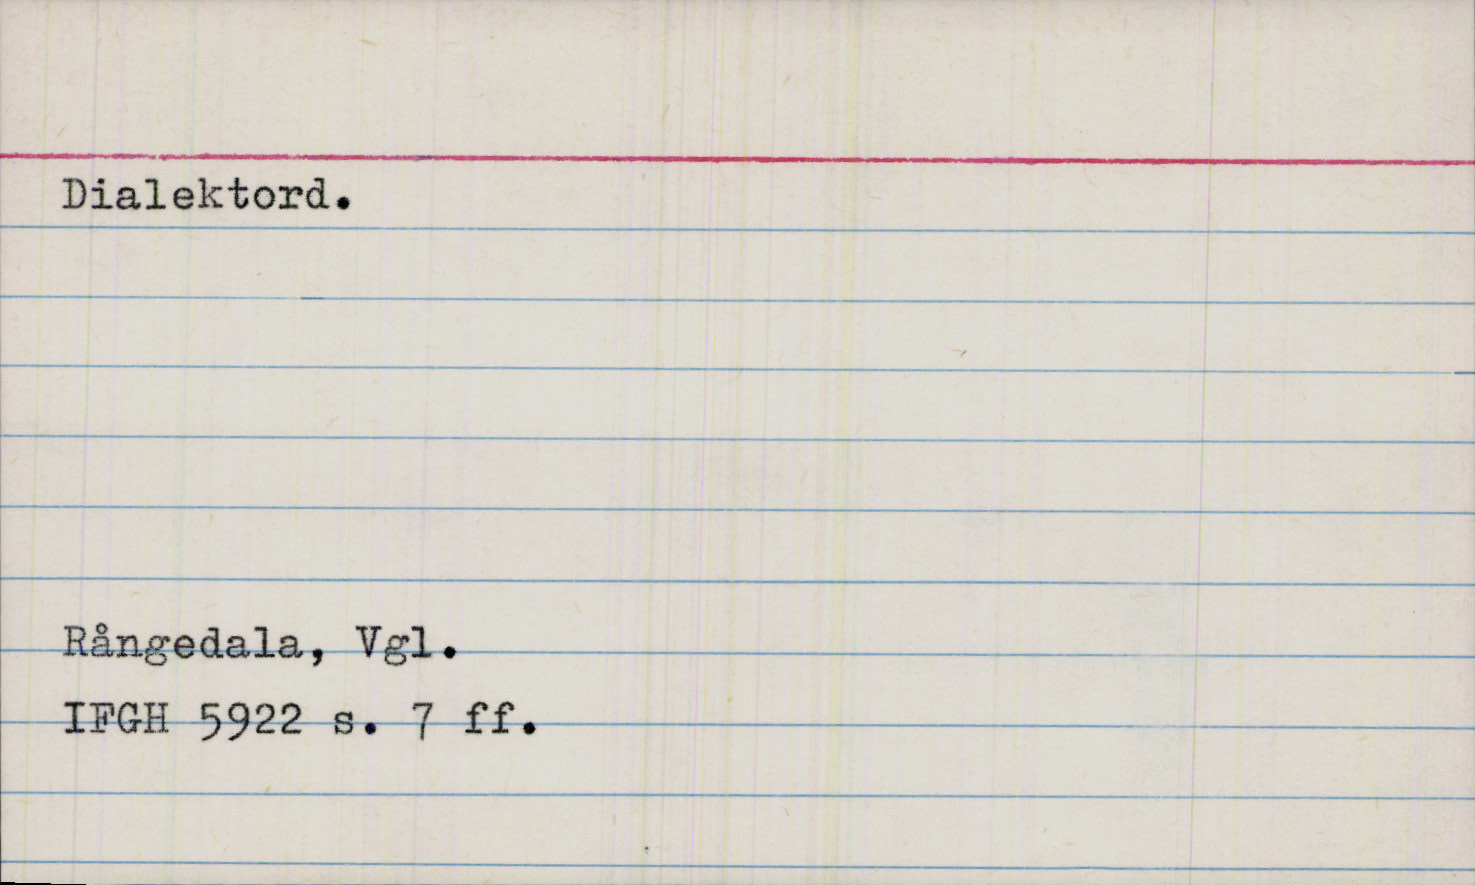 Dialektord.
Rångedala, Vgl.
IFGH 5922 s. 7 ff.